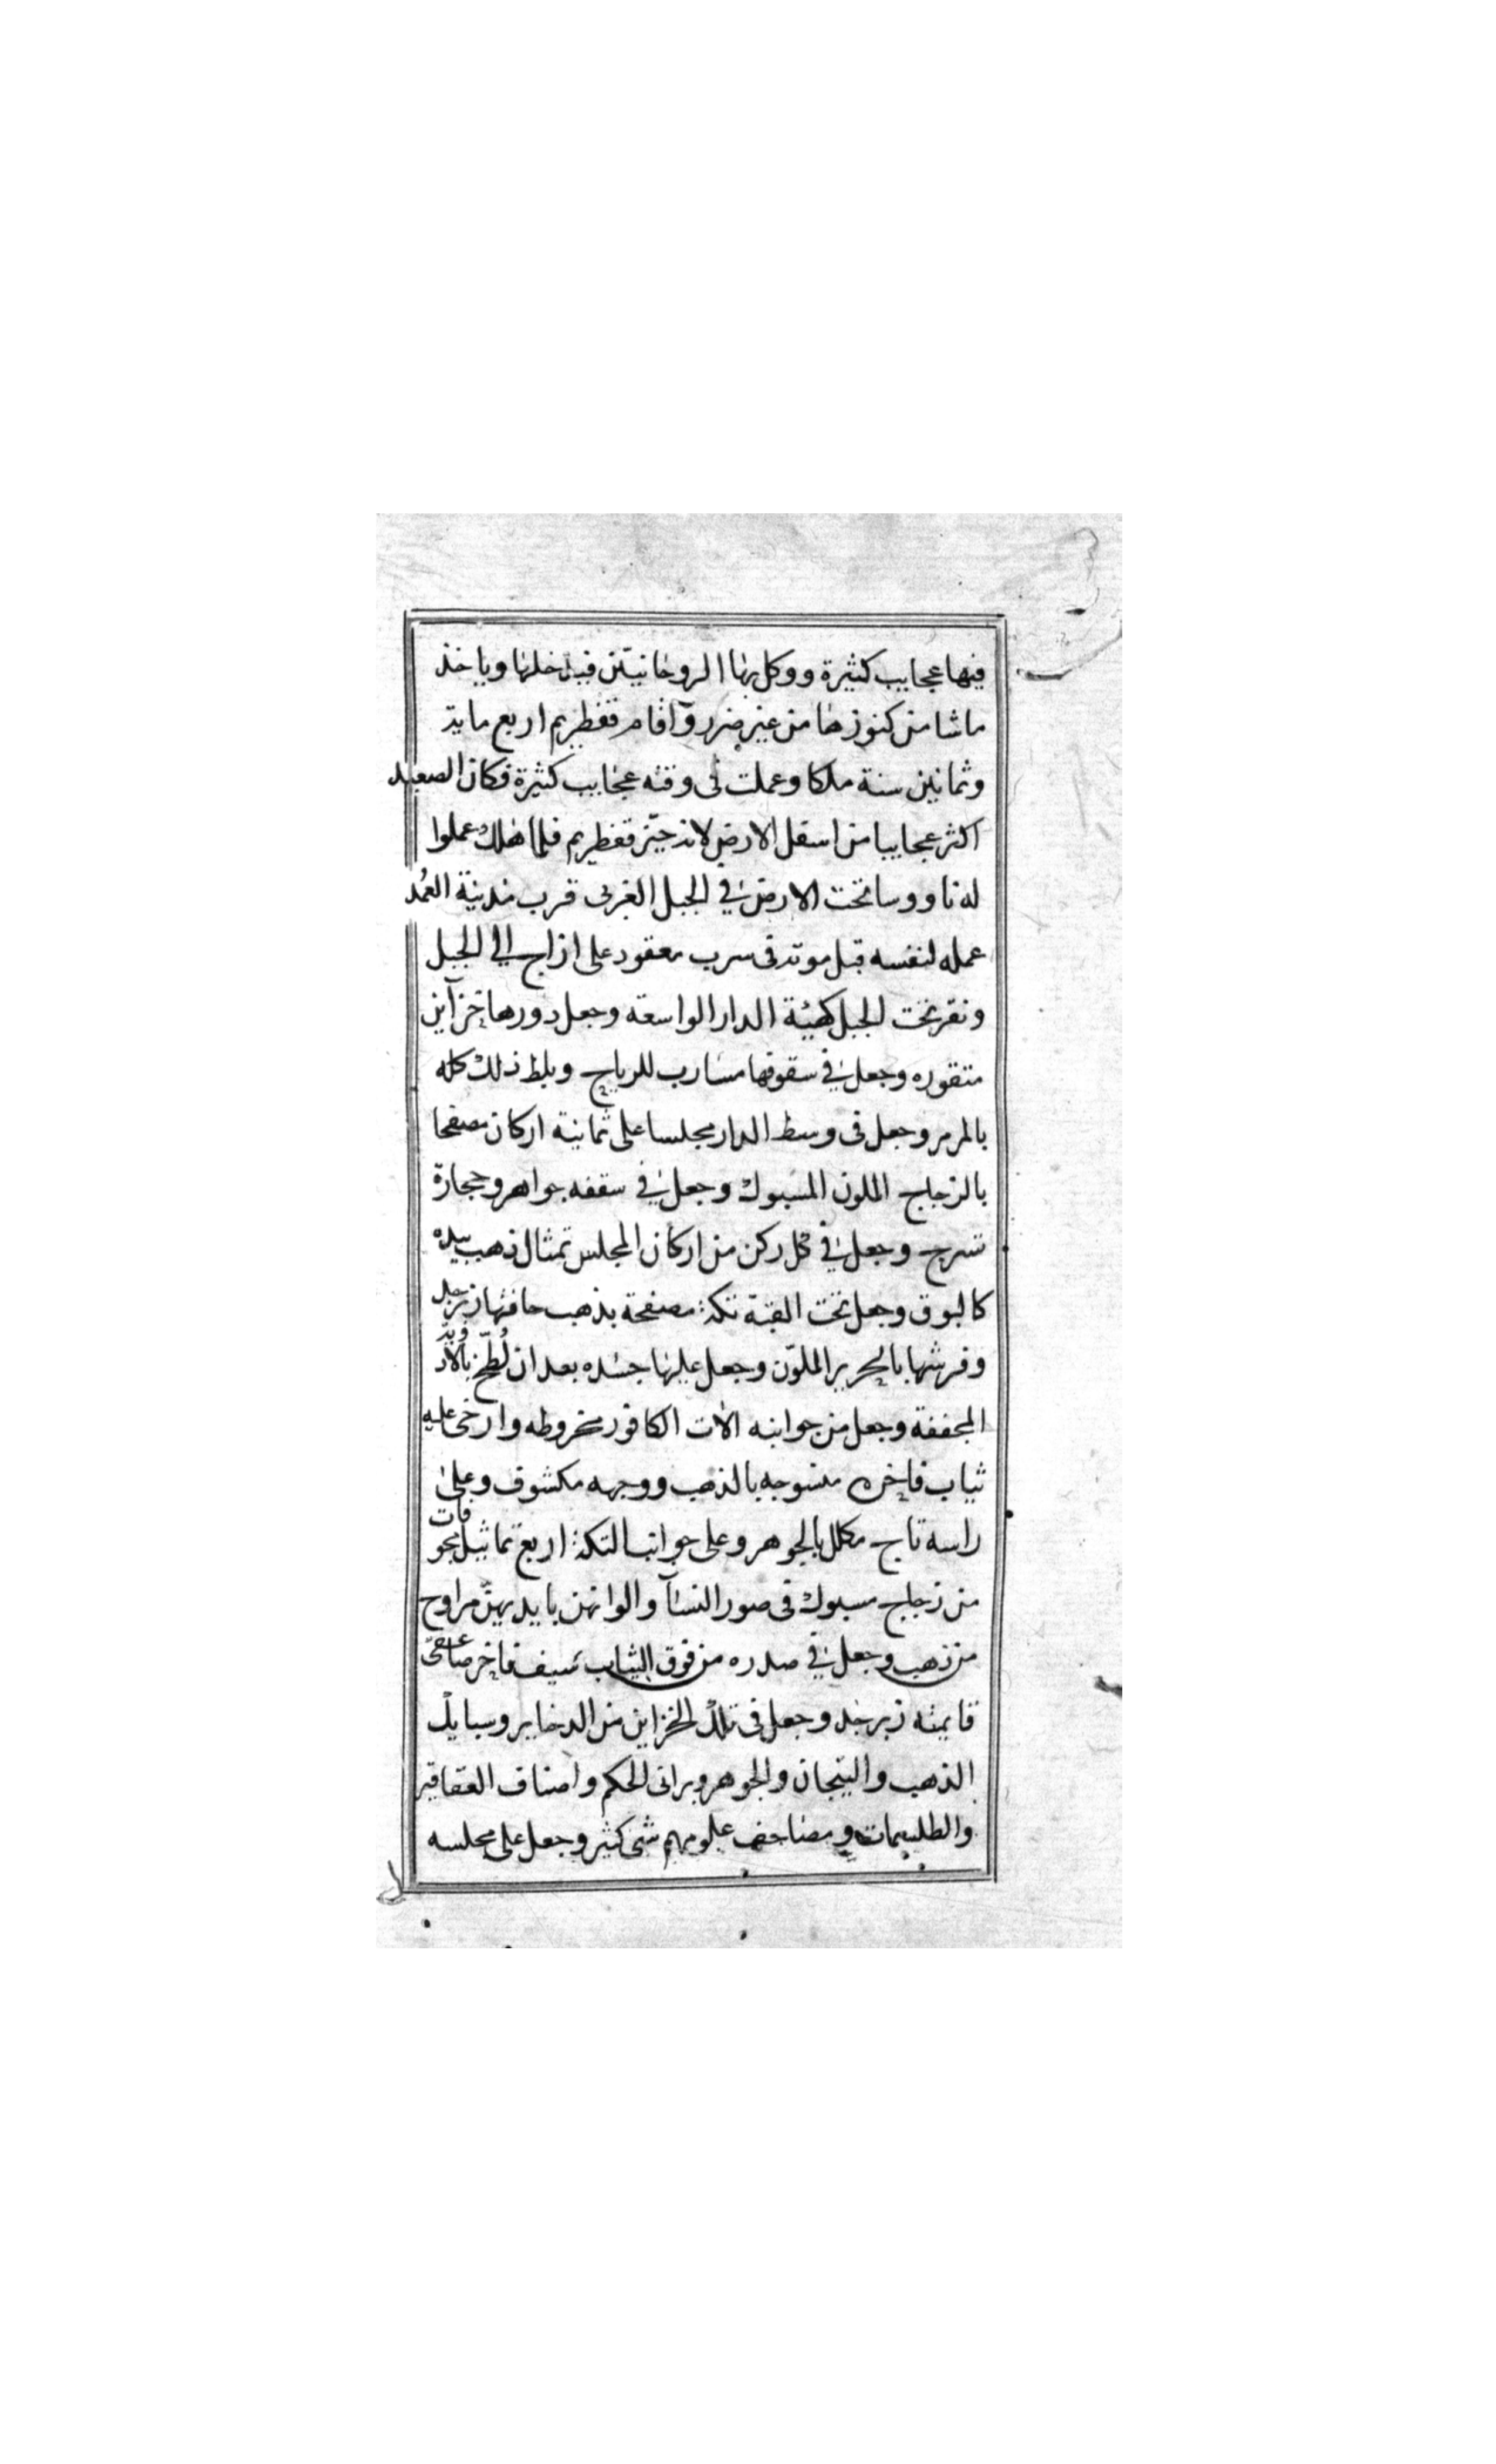 فيها عجايب كثيرة ووكل بها الروحانيين فيدخلها وياخذ
ماشا من كنوزها من غير ضرر وآقام قفطريم اربع ماية
وثمانين سنة ملكا وعملت فى وقته عجايب كثيرة فكان الصعيد
اكثر عجايبا من اسفل الارض لانه حيّز قفطريم فلما هلك عملوا
له ناووسا تحت الارض في الجبل الغربى قرب مدينة العُمد
عمله لنفسه قبل موته فى سرب معقود على ازاج الي الجبل
ونقر تحت الجبل كهيئة الدار الواسعة وجعل دورها خزآين
منقوره وجعل في سقوفها مسارب للرياح وبلط ذلك كله
بالمرمر وجعل فى وسط الدار مجلسا على ثمانية اركان مصفحا
بالزجاج الملون المسبوك وجعل في سقفه جواهر وحجارة
تسرج وجعل في كل ركن من اركان المجلس تمثال ذهب بيده
كالبوق وجعل تحت القبة تكة مصفحة بذهب حافتها زبرجد
وفرشها بالحرير الملوّن وجعل عليها جسده بعد ان لُطّخ بالادوية
المجففة وجعل من جوانبه الات الكافور مخروطه وارخى عليه
ثياب فاخره منسوجه بالذهب ووجهه مكشوف وعلى
راسه تاج مكلل بالجوهر وعلى جوانب التكة اربع تماثيل مجوفات
من زجاج مسبوك فى صور النسآ والوانهن بايديهنّ مراوح
من ذهب وجعل في صدره من فوق الثياب سيف فاخر صاعقى
قايمته زبرجد وجعل فى تلك الخزاين من الدخاير وسبايك
الذهب والتيجان والجوهر وبرانى الحكم واصناف العقاقير
والطلسمات ومصاحف علومهم شى كثير وجعل على مجلسه